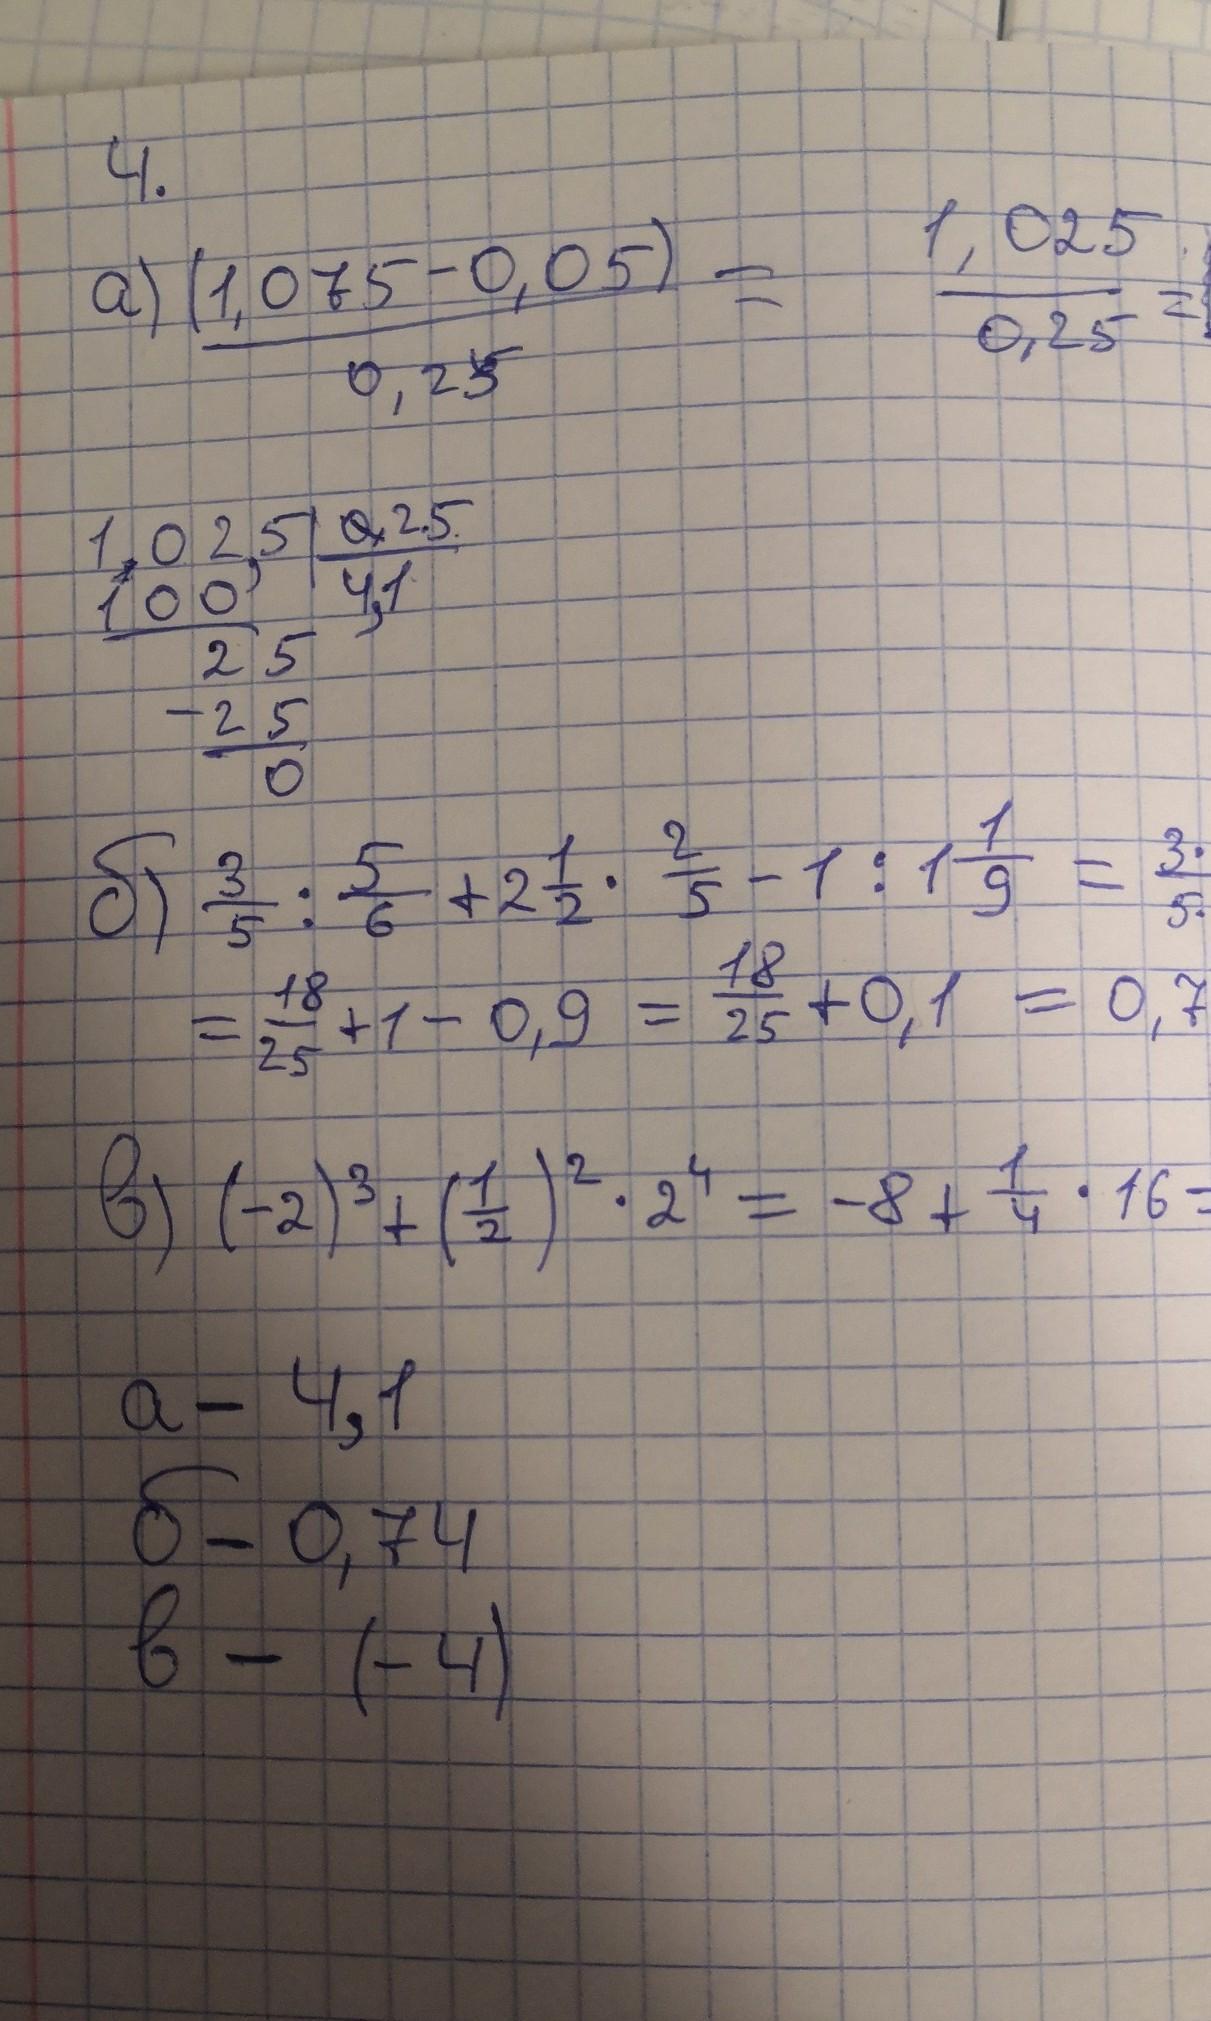 4.
а) (1,075-0,05) / 0,25 = 1,025 / 0,25 =
1,02,5 | 0,25
100 | 4,1
25
-25
0
б) 3/5 : 5/6 + 2 1/2 · 2/5 - 1 : 1 1/9 = 3· / 5·
= 18/25 + 1 - 0,9 = 18/25 + 0,1 = 0,7
в) (-2)³ + (1/2)² · 2⁴ = -8 + 1/4 · 16 =
а - 4,1
б - 0,74
в - (-4)